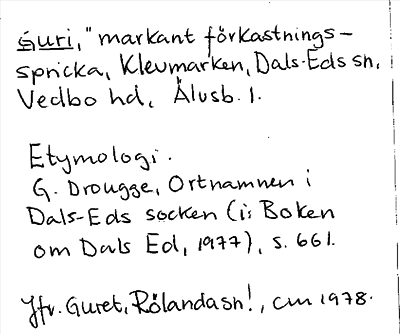 Guri, "markant förkastnings-
spricka, Klevmarken, Dals-Eds sn,
Vedbo hd, Älvsb. l.
Etymologi.
G. Drougge, Ortnamnen i
Dals-Eds socken (i: Boken
om Dals Ed, 1977), s. 661.
Jfr. Guret, Rölanda sn!, CM 1978.